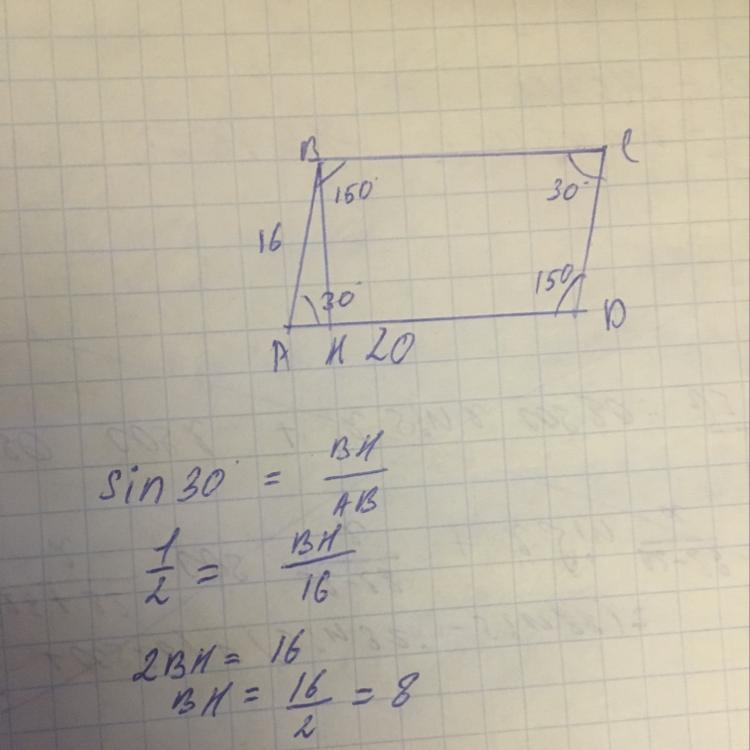 B C
150° 30°
16
30° 150
A H 20 D
sin 30° = BH/AB
1/2 = BH/16
2BH = 16
BH = 16/2 = 8